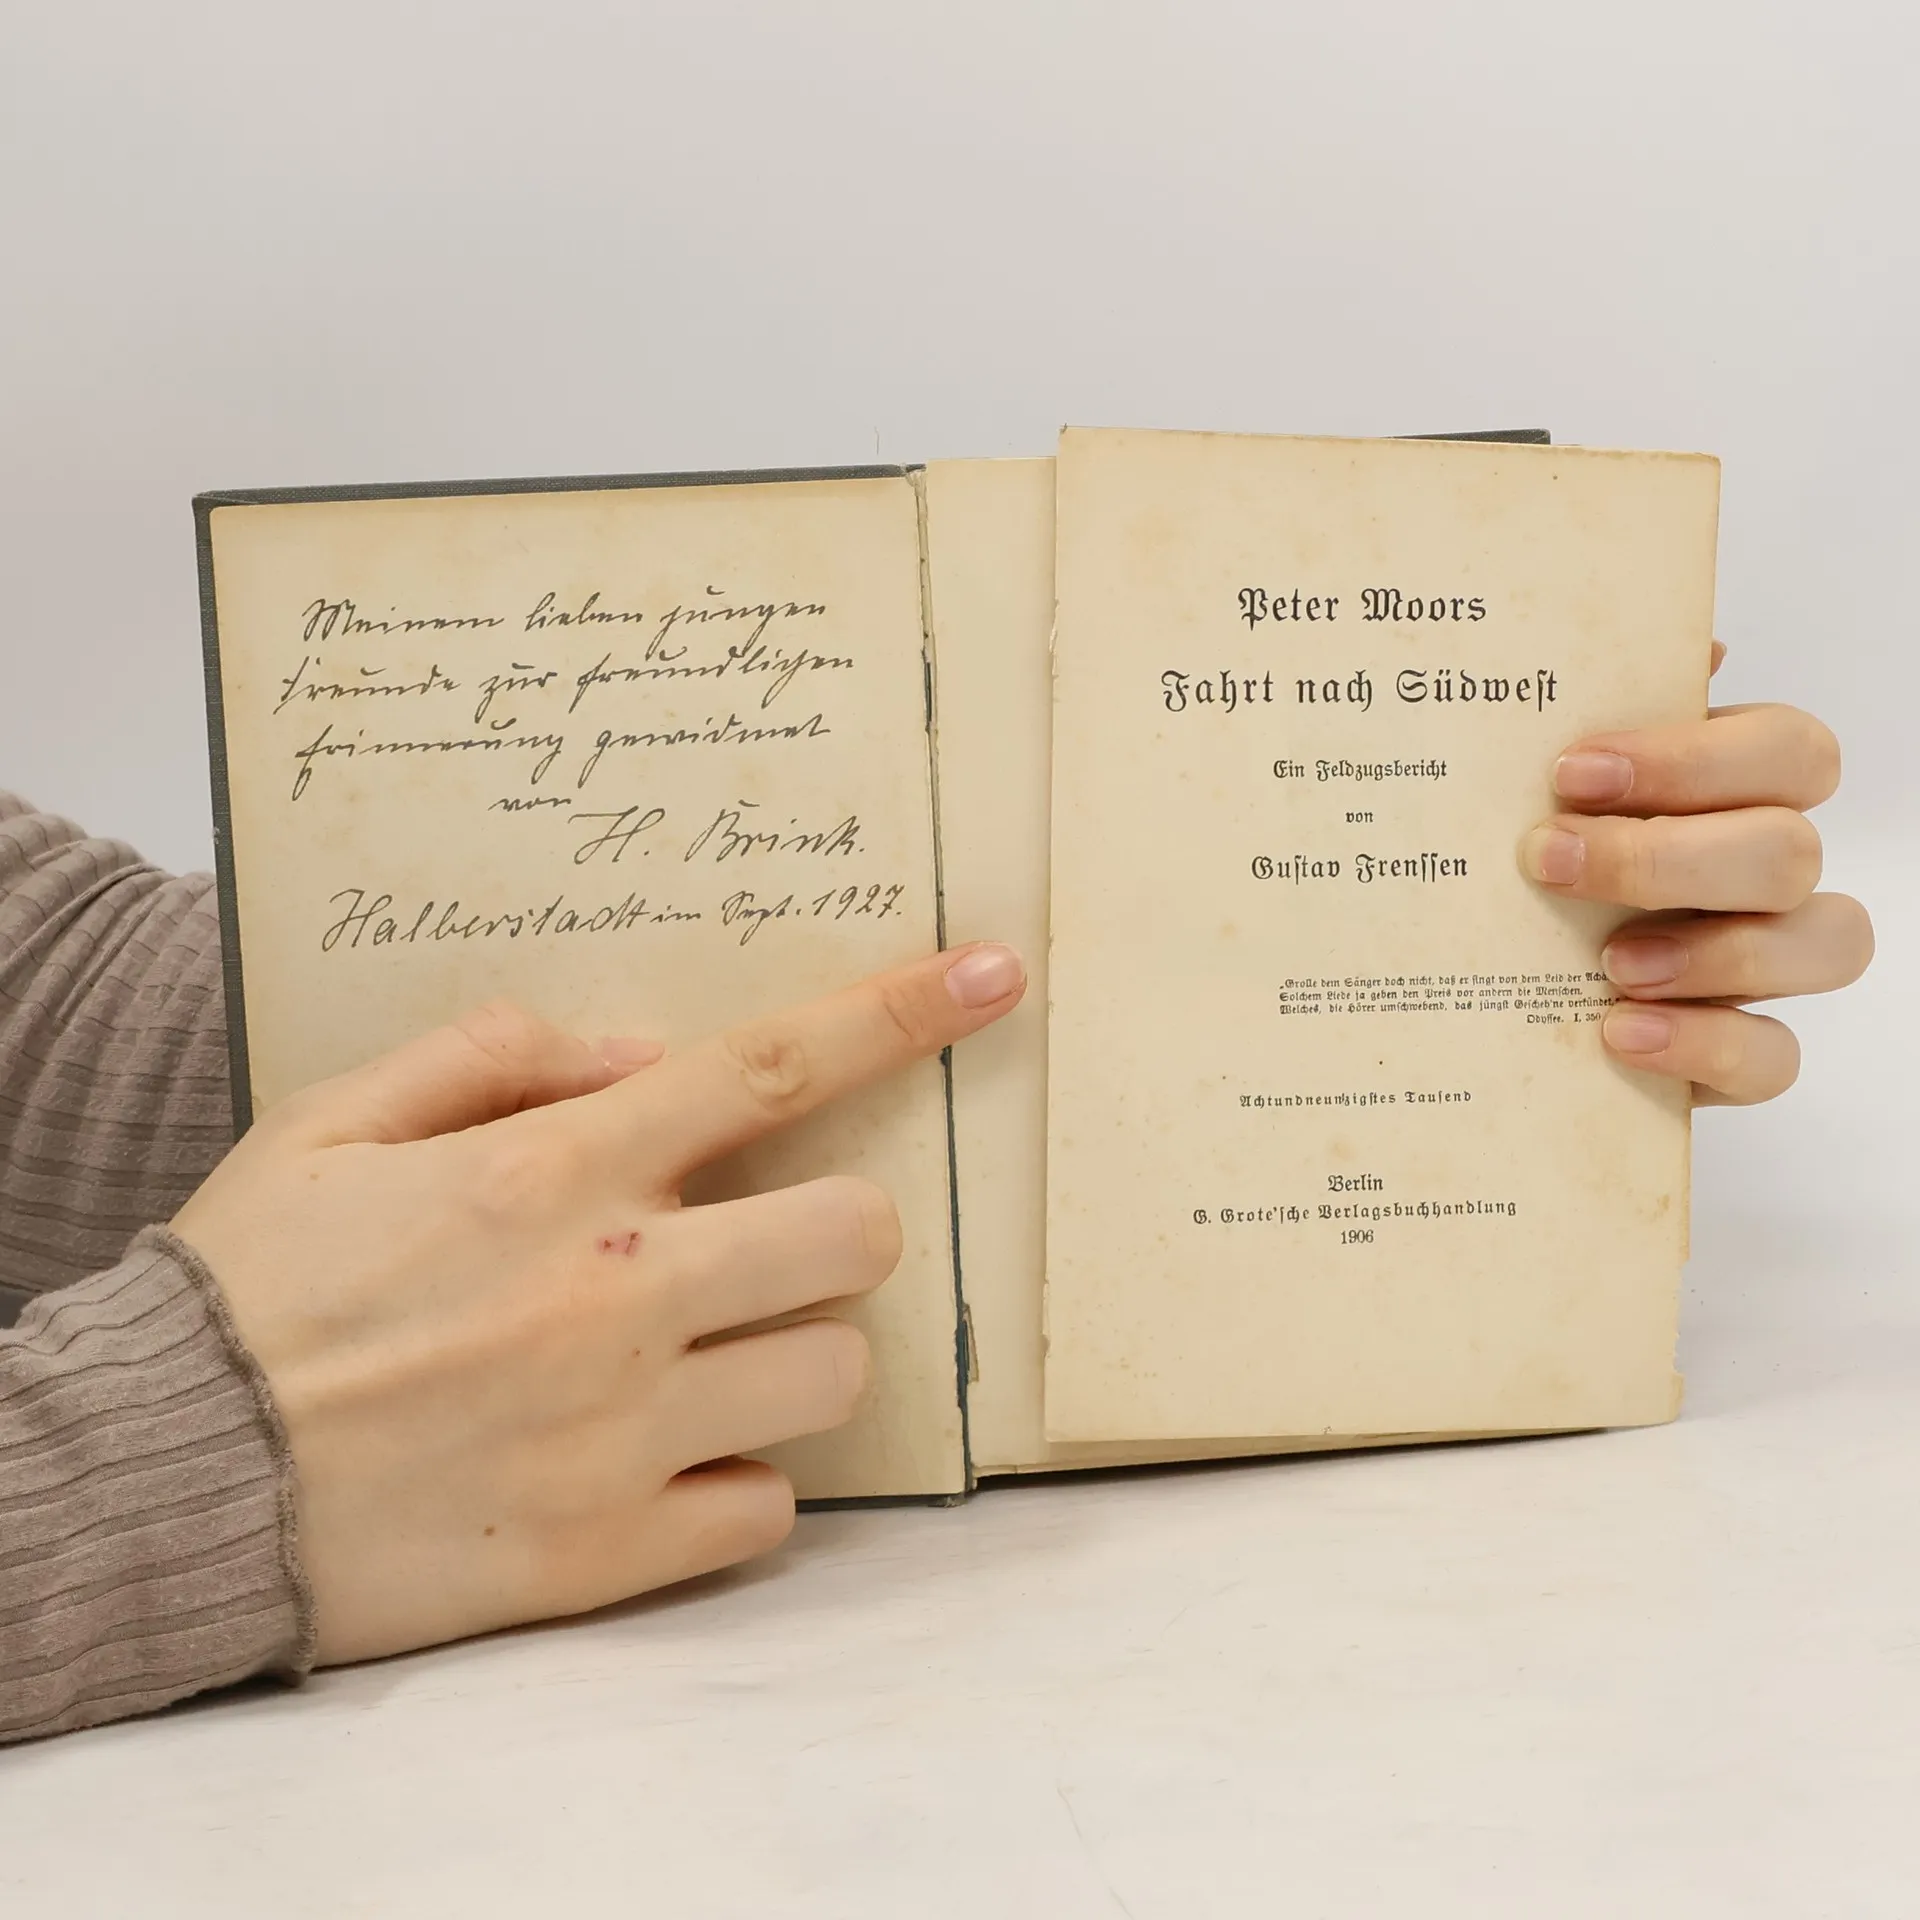 Meinem lieben jungen
Freunde zur freundlichen
Erinnerung gewidmet
von
H. Brink.
Halberstadt im Sept. 1927.
Peter Moors
Fahrt nach Südweſt
Ein Feldzugsbericht
von
Guſtav Frenſſen
„Grolle dem Sänger doch nicht, daß er ſingt von dem Leid der
Solchem Liede ja geben den Preis vor andern die Menſchen,
Welches, die Hörer umſchwebend, das jüngſt Geſcheh'ne verkündet."
Odyſſee. I, 350
Achtundneunzigſtes Tauſend
Berlin
G. Grote'ſche Verlagsbuchhandlung
1906